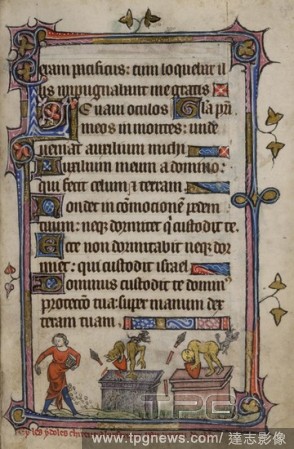 eram pacificus: cum loquebar il
lis impugnabant me gratis
Levavi oculos Gla pri
meos in montes: unde
veniat auxilium michi
Auxilium meum a domino:
qui fecit celum et terram
Non det in comocionem pedem
tuum: neqz dormitet qi custodit te
Ecce non dormitabit neqz dor
miet: qui custodit israel
Dominus custodit te domin9
protectio tua: super manum dex
teram tuam
TPG
www.tpgnews.com/ 達志影像